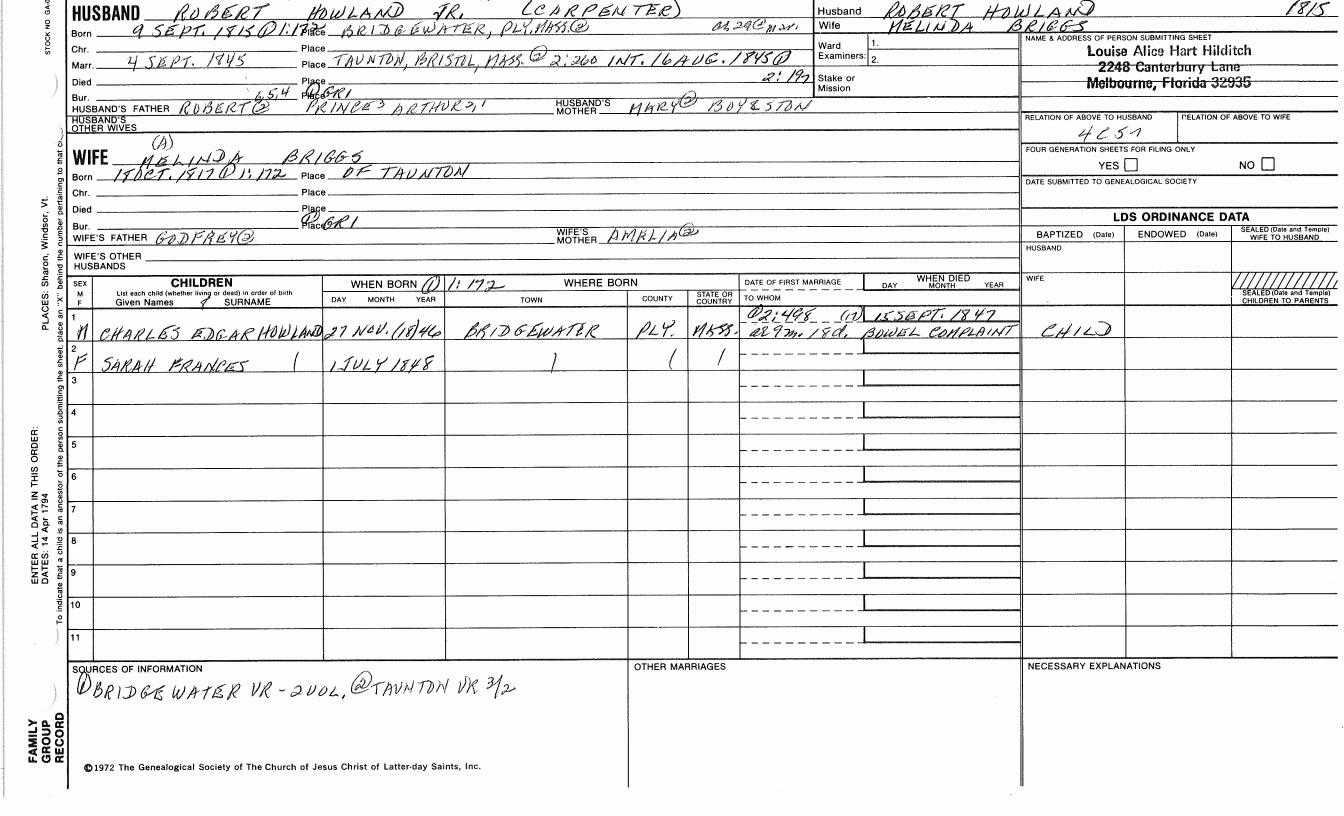 STOCK NO GA
HUSBAND ROBERT HOWLAND JR. (CARPENTER)
Husband ROBERT HOWLAND 1815
Born 9 SEPT. 1815 ① 1:172 Place BRIDGEWATER, PLY, MASS. ②
Wife MELINDA BRIGGS
Chr. Place
Ward Examiners: 1. 2.
Marr. 4 SEPT. 1845 Place TAUNTON, BRISTOL, MASS. ② 2:260 INT. 16 AUG. 1845 ①
2:192
Died Place
Stake or Mission
Bur. Place ① GRI
HUSBAND'S FATHER ROBERT② PRINCE3 ARTHUR2,1 HUSBAND'S MOTHER MARY② BOYLSTON
HUSBAND'S OTHER WIVES
(A)
WIFE MELINDA BRIGGS
Born OCT. 1817 ① 1:172 Place OF TAUNTON
Chr. Place
Died Place
Bur. Place ① GRI
WIFE'S FATHER GODFREY② WIFE'S MOTHER AMELIA②
WIFE'S OTHER HUSBANDS
NAME & ADDRESS OF PERSON SUBMITTING SHEET
Louise Alice Hart Hilditch
2248 Canterbury Lane
Melbourne, Florida 32935
RELATION OF ABOVE TO HUSBAND RELATION OF ABOVE TO WIFE
FOUR GENERATION SHEETS FOR FILING ONLY
YES NO
DATE SUBMITTED TO GENEALOGICAL SOCIETY
LDS ORDINANCE DATA
BAPTIZED (Date) ENDOWED (Date) SEALED (Date and Temple) WIFE TO HUSBAND
HUSBAND
WIFE
SEALED (Date and Temple) CHILDREN TO PARENTS
SEX M F
CHILDREN
List each child (whether living or dead) in order of birth
Given Names SURNAME
WHEN BORN ① 1:172
DAY MONTH YEAR
WHERE BORN
TOWN COUNTY STATE OR COUNTRY
DATE OF FIRST MARRIAGE
TO WHOM
WHEN DIED
DAY MONTH YEAR
1 M CHARLES EDGAR HOWLAND 27 NOV. (18)46 BRIDGEWATER PLY. MASS. ① 2:498 15 SEPT. 1847
ae 9m. 18d. BOWEL COMPLAINT CHILD
2 F SARAH FRANCES 1 JULY 1848
3
4
5
6
7
8
9
10
11
SOURCES OF INFORMATION
① BRIDGEWATER VR - 2 VOL, ② TAUNTON VR 3/2
OTHER MARRIAGES
NECESSARY EXPLANATIONS
©1972 The Genealogical Society of The Church of Jesus Christ of Latter-day Saints, Inc.
FAMILY GROUP RECORD
ENTER ALL DATA IN THIS ORDER:
DATES: 14 Apr 1794
PLACES: Sharon, Windsor, Vt.
To indicate that a child is an ancestor of the person submitting the sheet, place an "X" behind the number pertaining to that